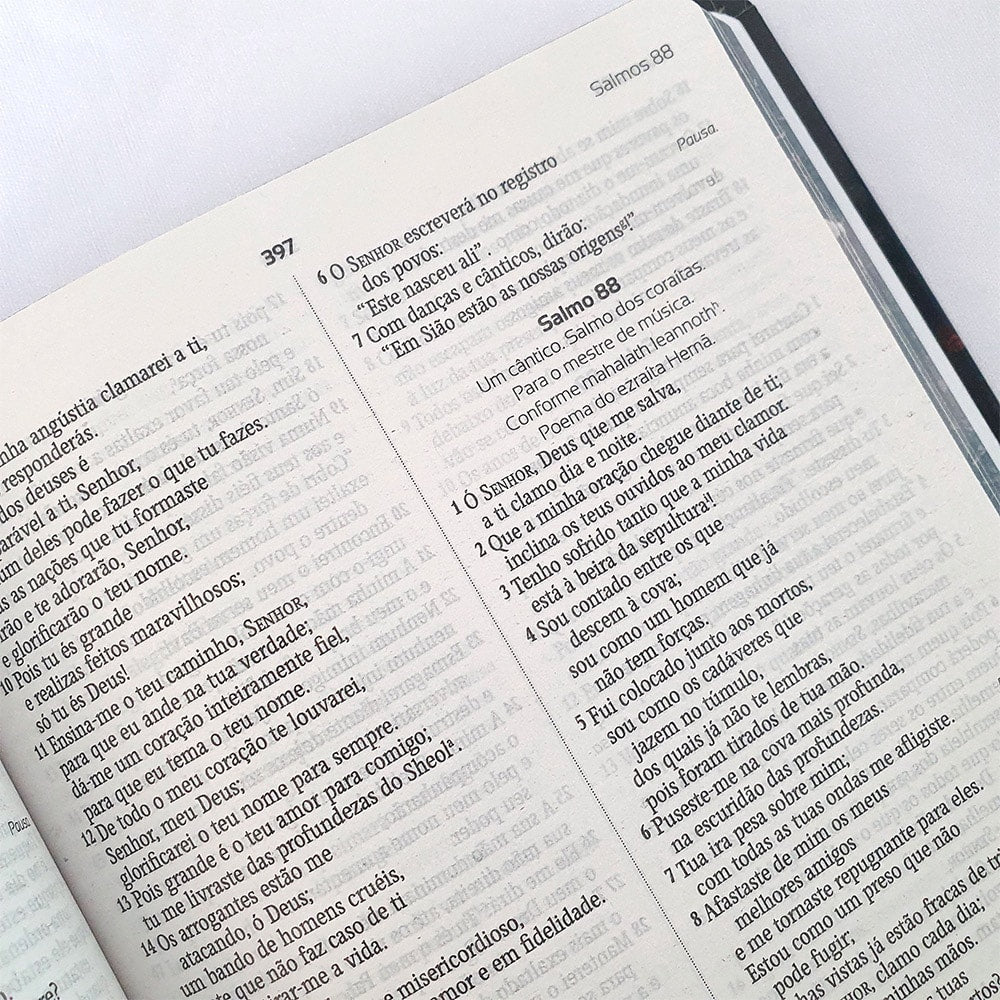 Salmos 88
397
nha angústia clamarei a ti,
responderás.
dos deuses é
parável a ti, Senhor,
um deles pode fazer o que tu fazes.
as nações que tu formaste
e te adorarão, Senhor,
e glorificarão o teu nome.
10 Pois tu és grande
e realizas feitos maravilhosos;
só tu és Deus!
11 Ensina-me o teu caminho, SENHOR,
para que eu ande na tua verdade;
dá-me um coração inteiramente fiel,
para que eu tema o teu nome.
12 De todo o meu coração te louvarei,
Senhor, meu Deus;
glorificarei o teu nome para sempre.
13 Pois grande é o teu amor para comigo;
tu me livraste das profundezas do Sheol.
14 Os arrogantes estão me
atacando, ó Deus;
um bando de homens cruéis,
que não faz caso de ti
tirar-me a vida.
e misericordioso,
amor e em fidelidade.
Pausa
6 O SENHOR escreverá no registro
dos povos:
“Este nasceu ali”. Pausa.
7 Com danças e cânticos, dirão:
“Em Sião estão as nossas origens!”
Salmo 88
Um cântico. Salmo dos coraítas.
Para o mestre de música.
Conforme mahalath leannothʰ.
Poema do ezraíta Hemã.
1 Ó SENHOR, Deus que me salva,
a ti clamo dia e noite.
2 Que a minha oração chegue diante de ti;
inclina os teus ouvidos ao meu clamor.
3 Tenho sofrido tanto que a minha vida
está à beira da sepultura!
4 Sou contado entre os que
descem à cova;
sou como um homem que já
não tem forças.
5 Fui colocado junto aos mortos,
sou como os cadáveres que
jazem no túmulo,
dos quais já não te lembras,
pois foram tirados de tua mão.
6 Puseste-me na cova mais profunda,
na escuridão das profundezas.
7 Tua ira pesa sobre mim;
com todas as tuas ondas me afligiste.
8 Afastaste de mim os meus
melhores amigos
e me tornaste repugnante para eles.
Estou como um preso que não
pode fugir;
vistas já estão fracas de tri
clamo cada dia;
minhas mãos.